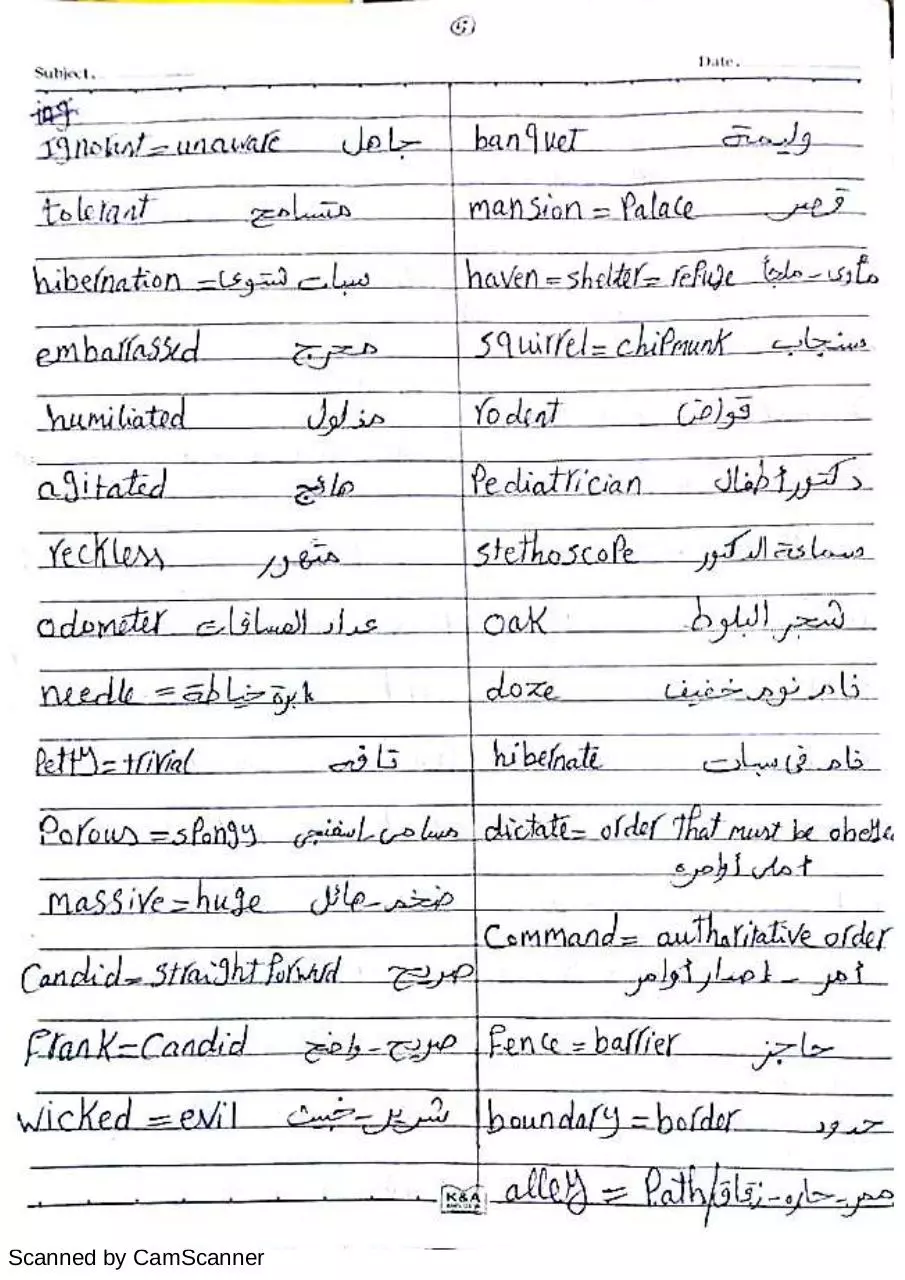 5
Subject.
Date.
ignorant = unaware جاهل
tolerant متسامح
hibernation = سبات شتوى
embarrassed محرج
humiliated مذلول
agitated هائج
reckless متهور
odometer عداد المسافات
needle = إبرة خياطة
Petty = trivial تافه
Porous = spongy مسامى إسفنجى
massive = huge ضخم - هائل
Candid = Straight forward صريح
Frank = Candid صريح - واضح
wicked = evil شرير - خبيث
banquet وليمة
mansion = Palace قصر
haven = shelter = refuge مأوى - ملجأ
squirrel = chipmunk سنجاب
rodent قوارض
Pediatrician دكتور أطفال
stethoscope سماعة الدكتور
oak شجر البلوط
doze نام نوم خفيف
hibernate نام فى سبات
dictate = order That must be
أملى أوامره
Command = autharitative order
أمر - إصدار أوامر
Fence = barrier حاجز
boundary = border حدود
alley = Path / ممر - حارة - زقاق
K&A
Scanned by CamScanner